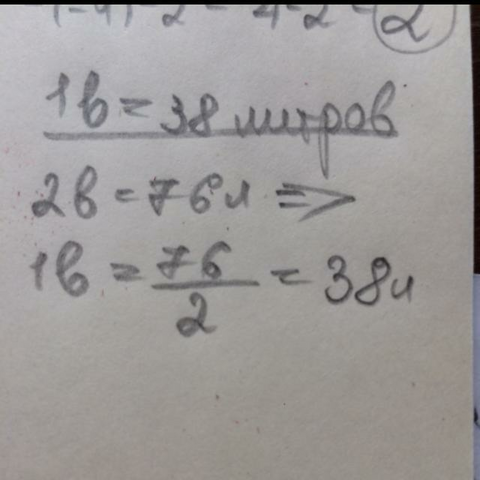 1в = 38 литров
2в = 76л =>
1в = 76/2 = 38л